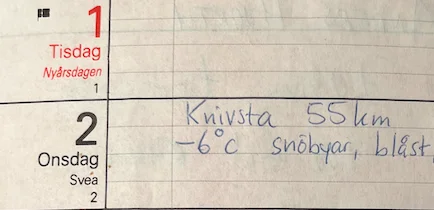 1
Tisdag
Nyårsdagen
1
2
Onsdag
Svea
2
Knivsta 55km
-6°C snöbyar, blåst,